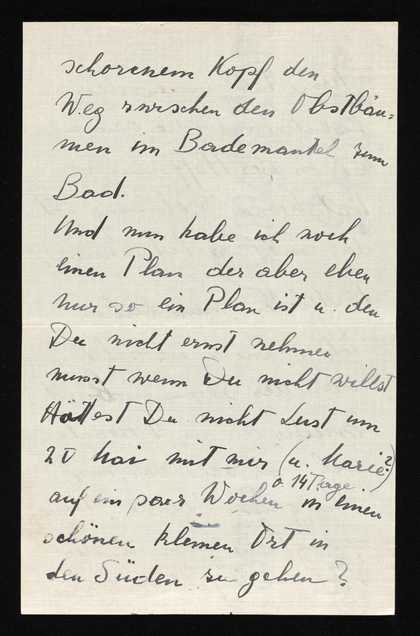 schorenem Kopf den
Weg zwischen den Obstbäu=
men im Bademantel zum
Bad.
Und nun habe ich noch
einen Plan der aber eben
nur so ein Plan ist u. den
Du nicht ernst nehmen
musst wenn Du nicht willst
Hättest Du nicht Lust um
20 Mai mit mir (u. Marie?)
o 14 Tage
auf ein paar Wochen in einen
schönen kleinen Ort in
den Süden zu gehen?